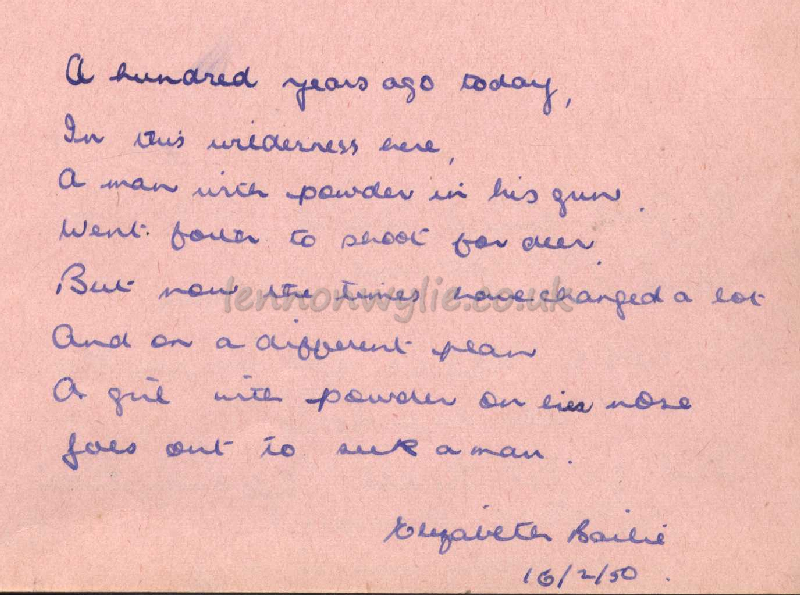 A hundred years ago today,
In this wilderness here,
A man with powder in his gun.
Went forth to shoot for deer.
But now the times have changed a lot
And on a different plan
A girl with powder on her nose
Goes out to seek a man.
Elizabeth Bailie
16/2/50.
lennonwylie.co.uk